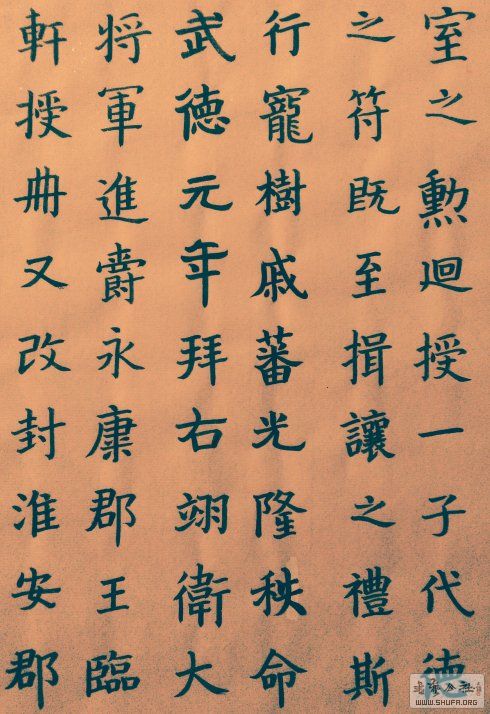 室之勲迴授一子代徳
之符既至揖讓之禮斯
行寵樹戚蕃光隆秩命
武徳元年拜右翊衛大
将軍進爵永康郡王臨
軒授冊又改封淮安郡
WWW.SHUFA.ORG